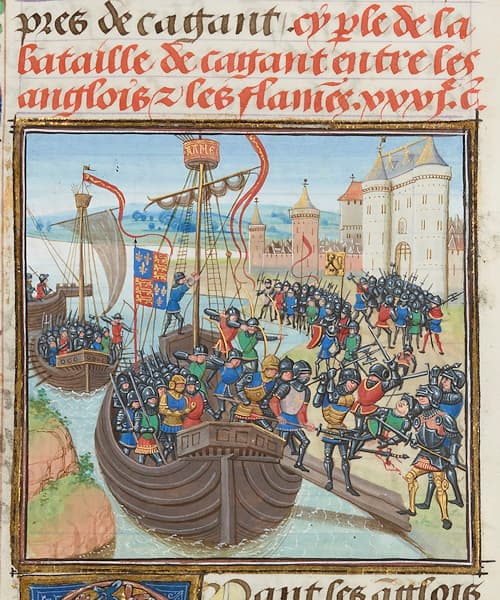 pres de cagant cy ple de la
bataille de cagant entre les
anglois ⁊ les flames. xxxj. c.
ant les anglois